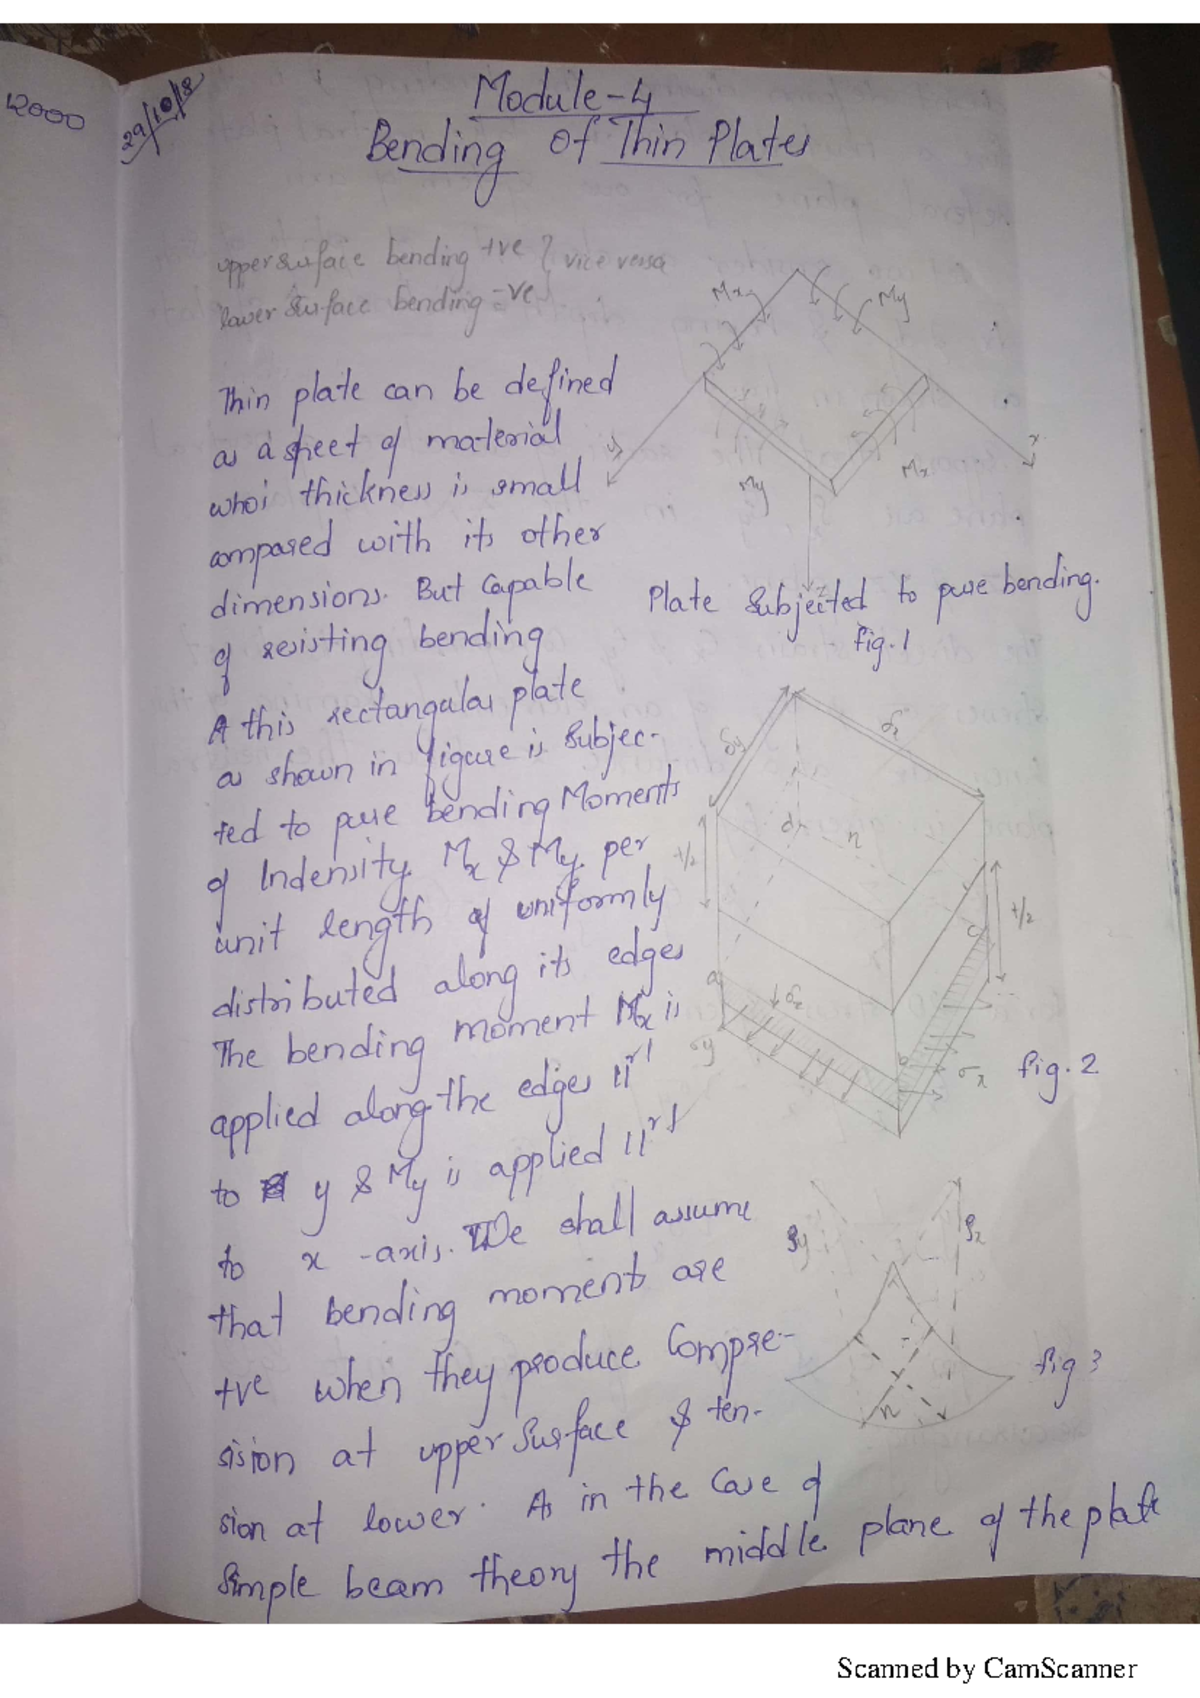 12000
29/10/18
Module-4
Bending of Thin Plates
upper surface bending +ve } vice versa
lower surface bending = -ve
Mx
My
Thin plate can be defined
as a sheet of material
whoi thickness is small
compared with its other
dimensions. But Capable
of resisting bending
y
x
My
Mx
z
Plate Subjected to pure bending.
fig.1
A this rectangular plate
as shown in figure is Subjec-
ted to pure bending Moments
of Indensity Mx & My. per
unit length of uniformly
distributed along its edges
The bending moment Mx is
applied along the edges 11rl
to y & My is applied 11rl
to x -axis. We shall assume
that bending moments are
+ve when they produce Compre-
sision at upper Surface & ten-
sion at lower. As in the Case of
Simple beam theory the middle plane of the plate
δy
t/2
n
t/2
a
c
σy
b
σx
fig.2
ρy
ρx
n
fig 3
Scanned by CamScanner